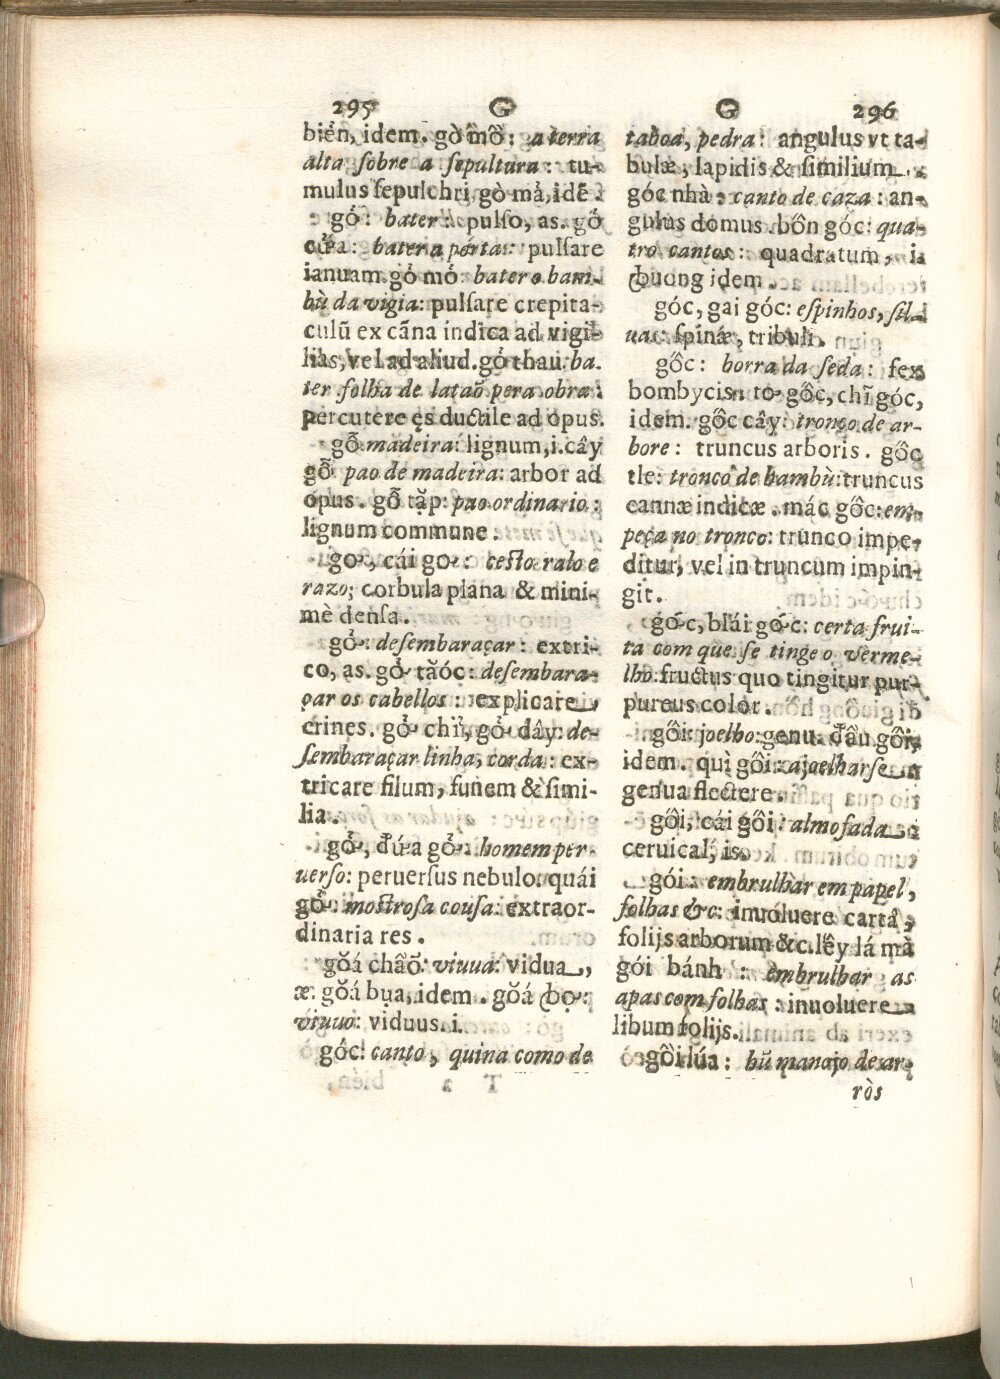 295 G
biển, idem. gò mồ: a terra
alta sobre a sepultura: tu-
mulus sepulchri, gò mả, idẽ.
gỏ: bater: pulso, as. gỏ
cửa: bater a pórta: pulsare
ianuam. gỏ mỏ: bater o bam-
bù da vigia: pulsare crepita-
culũ ex cãna indica ad vigi-
lias, vel ad aliud. gỏ thau: ba-
ter folha de lataõ pera obra:
percutere ęs ductile ad opus.
gỗ madeira: lignum, i. cây
gỗ pao de madeira: arbor ad
opus. gỗ tặp: pao ordinario:
lignum commune.
gơ, cái gơ: cesto ralo e
razo; corbula plana & mini-
mè densa.
gở: desembaraçar: extri-
co, as. gở tăóc: desembara-
çar os cabellos: explicare
crines. gở chỉ, gở dây: de-
sembaraçar linha, corda: ex-
tricare filum, funem & simi-
lia.
gở, đứa gở: homem per-
uerso: peruersus nebulo. quái
gở: mostrosa cousa: extraor-
dinaria res.
gŏá chầõ: viuua: vidua,
æ. gŏá bụa, idem. gŏá ꞗợ:
viuuo: viduus. i.
góc: canto, quina como de
G 296
taboa, pedra: angulus vt ta-
bulæ, lapidis & similium.
góc nhà: canto de caza: an-
gulus domus. bốn góc: qua-
tro cantos: quadratum, i.
ꞗuong idem.
góc, gai góc: espinhos, sil-
uas: spinæ, tribuli.
gốc: borra da seda: fex
bombycis. tơ gốc, chĩ góc,
idem. gốc cây: tronço de ar-
bore: truncus arboris. gốc
tle: tronco de bambù: truncus
cannæ indicæ. mác gốc: em-
peça no tronco: trunco impe-
ditur, vel in truncum impin-
git.
gớc, blái gớc: certa frui-
ta com que se tinge o verme-
lho: fructus quo tingitur pur-
pureus color.
gối: joelho: genu. đầu gối,
idem. quì gối: ajoelharse
genua flectere.
gối, cái gối: almofada
ceruical, is.
gói: embrulhàr em papel,
folhas &c: inuoluere cartâ,
folijs arborum &c. lếy lá mà
gói bánh: embrulhar as
apas com folhas: inuoluere
libum folijs.
gồi lúa: hũ manojo de ar-
ròs